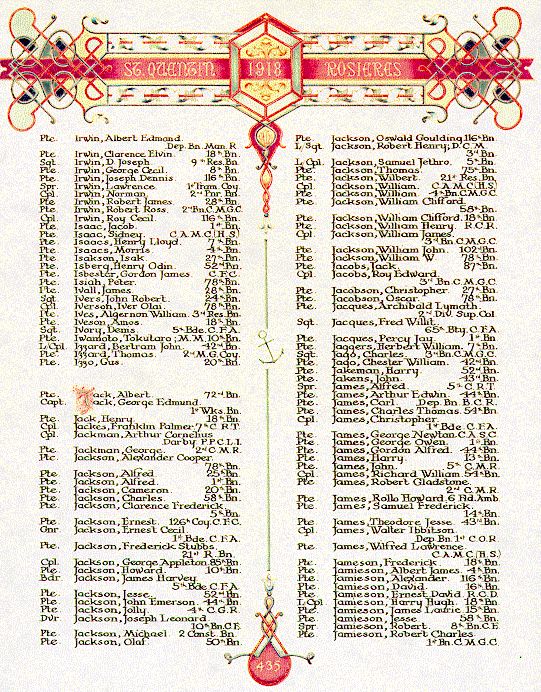 ST. QUENTIN 1918 ROSIERES
Pte. Irwin, Albert Edmond
Dep. Bn. Man. R.
Pte. Irwin, Clarence Elvin. 18th Bn.
Sgt. Irwin, D. Joseph. 9th Res. Bn.
Pte. Irwin, George Cecil. 8th Bn.
Pte. Irwin, Joseph Dennis. 116th Bn.
Spr. Irwin, Lawrence. 1st Tram. Coy.
Cpl. Irwin, Norman. 2nd Pnr. Bn.
Pte. Irwin, Robert James. 28th Bn.
Pte. Irwin, Robert Ross. 2nd Bn. C.M.G.C.
Cpl. Irwin, Roy Cecil. 116th Bn.
Pte. Isaac, Jacob. 1st Bn.
Pte. Isaac, Sidney. C.A.M.C. (H.S.)
Pte. Isaacs, Henry Lloyd. 7th Bn.
Pte. Isaacs, Morris. 4th Bn.
Pte. Isakson, Isak. 27th Bn.
Pte. Isberg, Henry Odin. 52nd Bn.
Pte. Isbester, Gordon James. C.F.C.
Pte. Isiah, Peter. 78th Bn.
Pte. Ivall, James. 28th Bn.
Sgt. Ivers, John Robert. 24th Bn.
Cpl. Iverson, Iver Olai. 78th Bn.
Pte. Ives, Algernon William. 3rd Res. Bn.
Pte. Iveson, Amos. 18th Bn.
Sgt. Ivory, Denis. 5th Bde. C.F.A.
Pte. Iwamoto, Tokutaro; M.M. 10th Bn.
L. Cpl. Izzard, Bertram John. 42nd Bn.
Pte. Izzard, Thomas. 2nd M.G. Coy.
Pte. Izzo, Gus. 20th Bn.
Pte. Jack, Albert. 72nd Bn.
Capt. Jack, George Edmund.
1st Wks. Bn.
Pte. Jack, Henry. 18th Bn.
Cpl. Jackes, Franklin Palmer. 7th C.R.T.
Cpl. Jackman, Arthur Cornelius
Darby. P.P.C.L.I.
Pte. Jackman, George. 2nd C.M.R.
Pte. Jackson, Alexander Cooper.
78th Bn.
Pte. Jackson, Alfred. 25th Bn.
Pte. Jackson, Alfred. 1st Bn.
Pte. Jackson, Cameron. 20th Bn.
Pte. Jackson, Charles. 58th Bn.
Pte. Jackson, Clarence Frederick.
5th Bn.
Pte. Jackson, Ernest. 126th Coy. C.F.C.
Gnr. Jackson, Ernest Cecil.
1st Bde. C.F.A.
Pte. Jackson, Frederick Stubbs.
21st R. Bn.
Cpl. Jackson, George Appleton. 85th Bn.
Pte. Jackson, Howard. 10th Bn.
Bdr. Jackson, James Harvey.
5th Bde. C.F.A.
Pte. Jackson, Jesse. 52nd Bn.
Pte. Jackson, John Emerson. 44th Bn.
Pte. Jackson, Jolly. 4th C.G.R.
Dvr. Jackson, Joseph Leonard.
10th Bn. C.E.
Pte. Jackson, Michael. 2 Const. Bn.
Pte. Jackson, Olaf. 50th Bn.
Pte. Jackson, Oswald Goulding. 116th Bn.
L. Sgt. Jackson, Robert Henry; D.C.M.
3rd Bn.
L. Cpl. Jackson, Samuel Jethro. 5th Bn.
Pte. Jackson, Thomas. 75th Bn.
Pte. Jackson, Wilbert. 21st Res. Bn.
Cpl. Jackson, William. C.A.M.C. (H.S.)
Pte. Jackson, William. 4th Bn. C.M.G.C.
Pte. Jackson, William Clifford.
58th Bn.
Pte. Jackson, William Clifford. 18th Bn.
Pte. Jackson, William Henry. R.C.R.
Cpl. Jackson, William James.
3rd Bn. C.M.G.C.
Pte. Jackson, William John. 102nd Bn.
Pte. Jackson, William W. 78th Bn.
Pte. Jacobs, Jack. 87th Bn.
Cpl. Jacobs, Roy Edward.
3rd Bn. C.M.G.C.
Pte. Jacobson, Christopher. 27th Bn.
Pte. Jacobson, Oscar. 78th Bn.
Pte. Jacques, Archibald Lymath.
2nd Div. Sup. Col.
Sgt. Jacques, Fred Willit.
65th Bty. C.F.A.
Pte. Jacques, Percy Jay. 1st Bn.
Pte. Jaggers, Herbert William. 7th Bn.
Sgt. Jago, Charles. 3rd Bn. C.M.G.C.
Pte. Jago, Chester William. 42nd Bn.
Pte. Jakeman, Harry. 52nd Bn.
Pte. Jakens, John. 43rd Bn.
Spr. James, Alfred. 5th C.R.T.
Pte. James, Arthur Edwin. 44th Bn.
Pte. James, Carl. Dep. Bn. B.C.R.
Pte. James, Charles Thomas. 54th Bn.
Cpl. James, Christopher.
1st Bde. C.F.A.
Pte. James, George Newton. C.A.S.C.
Pte. James, George Owen. 1st Bn.
Pte. James, Gordon Alfred. 44th Bn.
Pte. James, Harry. 13th Bn.
Pte. James, John. 5th C.M.R.
Cpl. James, Richard William. 54th Bn.
Pte. James, Robert Gladstone.
2nd C.M.R.
Pte. James, Rollo Howard. 6 Fld. Amb.
Pte. James, Samuel Frederick.
14th Bn.
Pte. James, Theodore Jesse. 43rd Bn.
Cpl. James, Walter Ibbitson.
Dep. Bn. 1st C.O.R.
Pte. James, Wilfred Lawrence.
C.A.M.C. (H.S.)
Pte. Jameson, Frederick. 18th Bn.
Pte. Jamieson, Albert James. 4th Bn.
Pte. Jamieson, Alexander. 116th Bn.
Pte. Jamieson, David. 16th Bn.
Pte. Jamieson, Ernest David. R.C.D.
L. Cpl. Jamieson, Harry Hugh. 18th Bn.
Pte. Jamieson, James Laurie. 15th Bn.
Pte. Jamieson, Jesse. 58th Bn.
Spr. Jamieson, Robert. 8th Bn. C.E.
Pte. Jamieson, Robert Charles.
1st Bn. C.M.G.C.
435